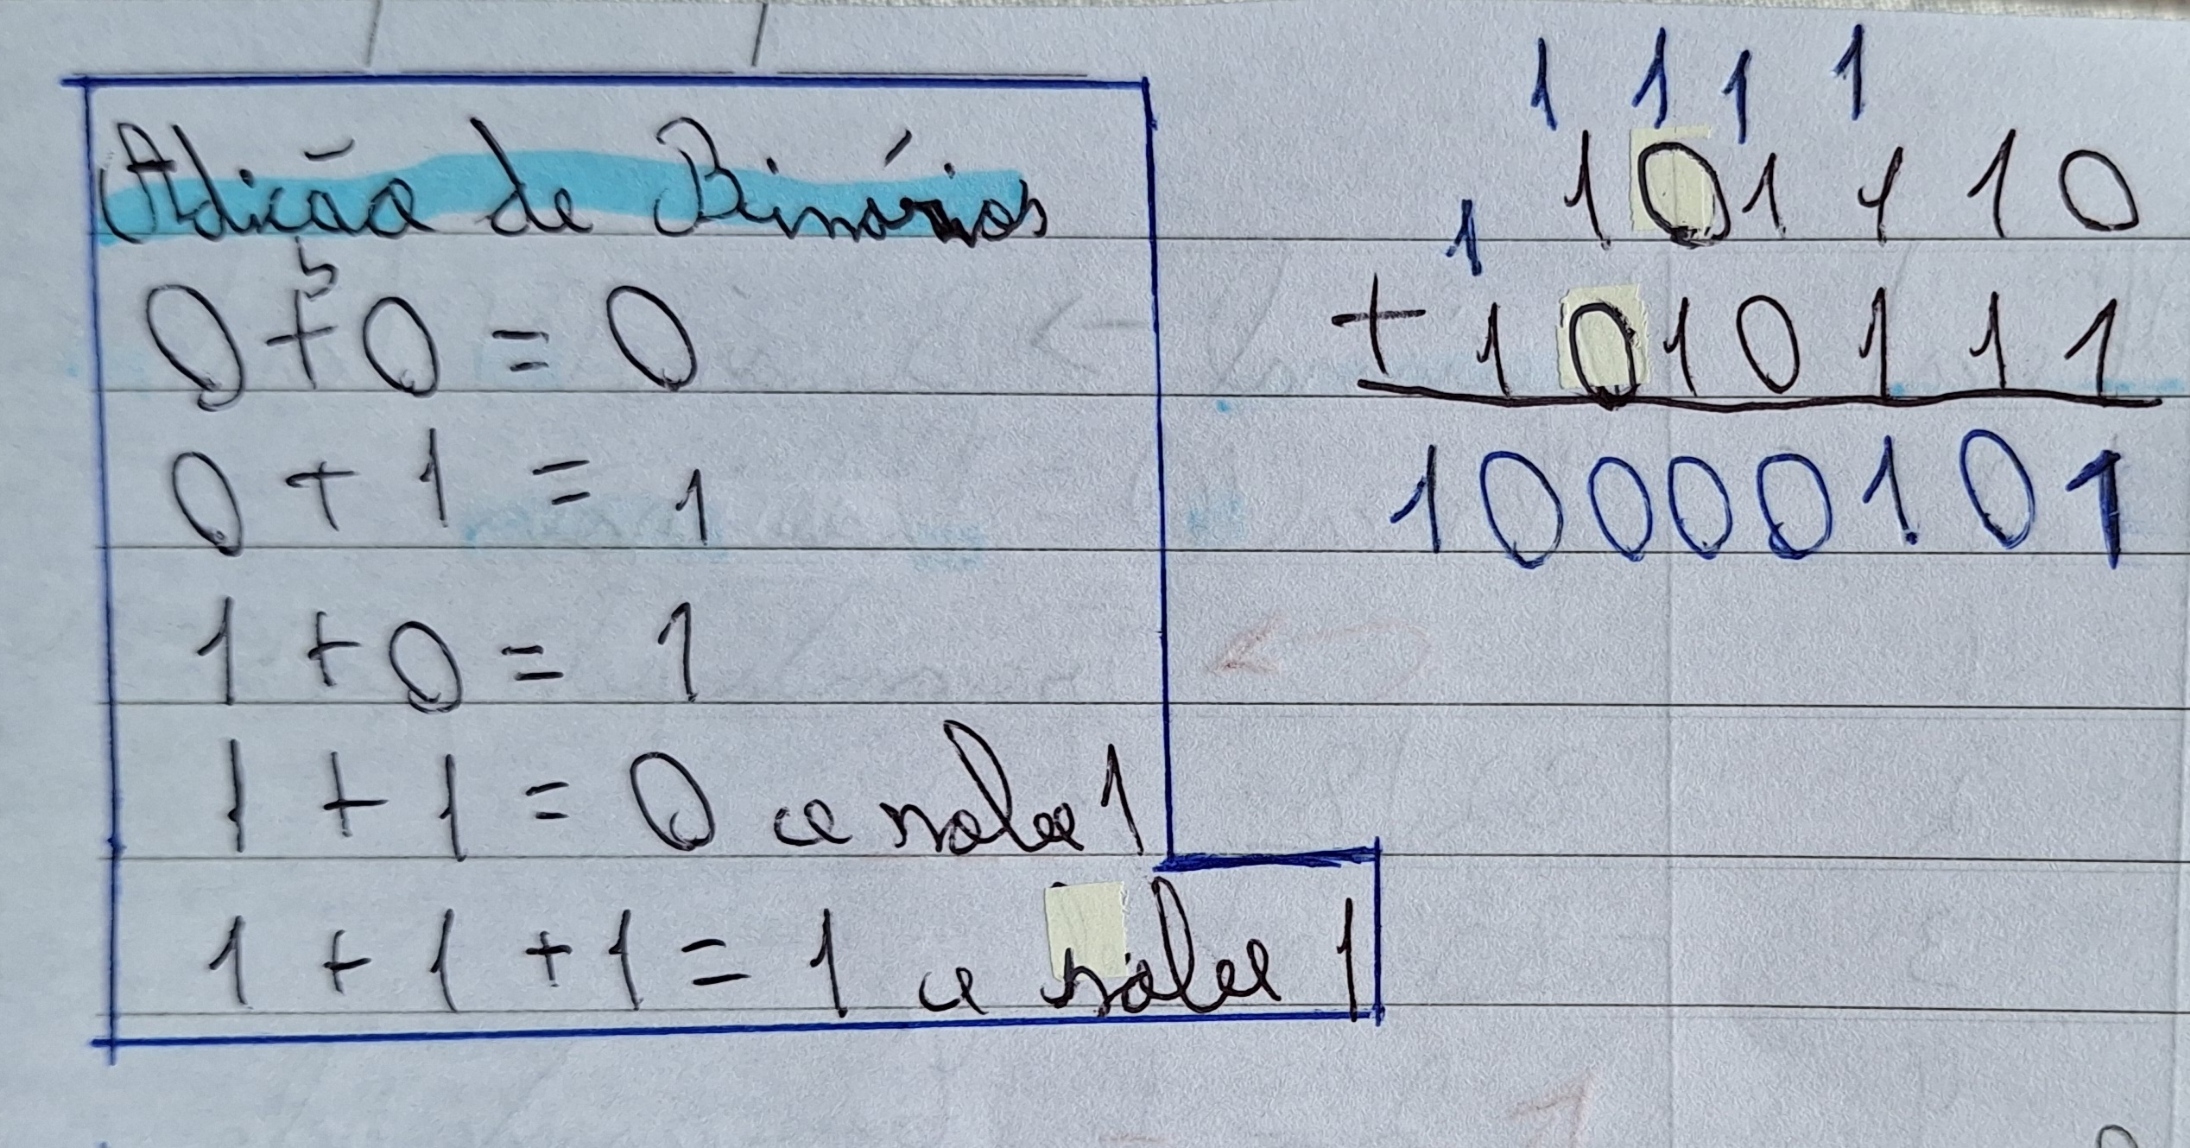 Adição de Binários
0 + 0 = 0
0 + 1 = 1
1 + 0 = 1
1 + 1 = 0 e sobe 1
1 + 1 + 1 = 1 e sobe 1
1 1 1 1
1 0 1 1 1 0
1
+ 1 0 1 0 1 1 1
1 0 0 0 0 1 0 1